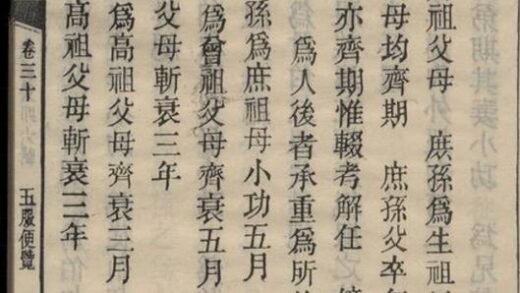 祖父母　庶孫爲生祖
母均齊期　庶孫父卒
亦齊期惟輟考解任
爲人後者承重爲所
孫爲庶祖母小功五月
爲曾祖父母齊衰五月
父母斬衰三年
爲高祖父母齊衰三月
高祖父母斬衰三年
卷三十　五服便覽